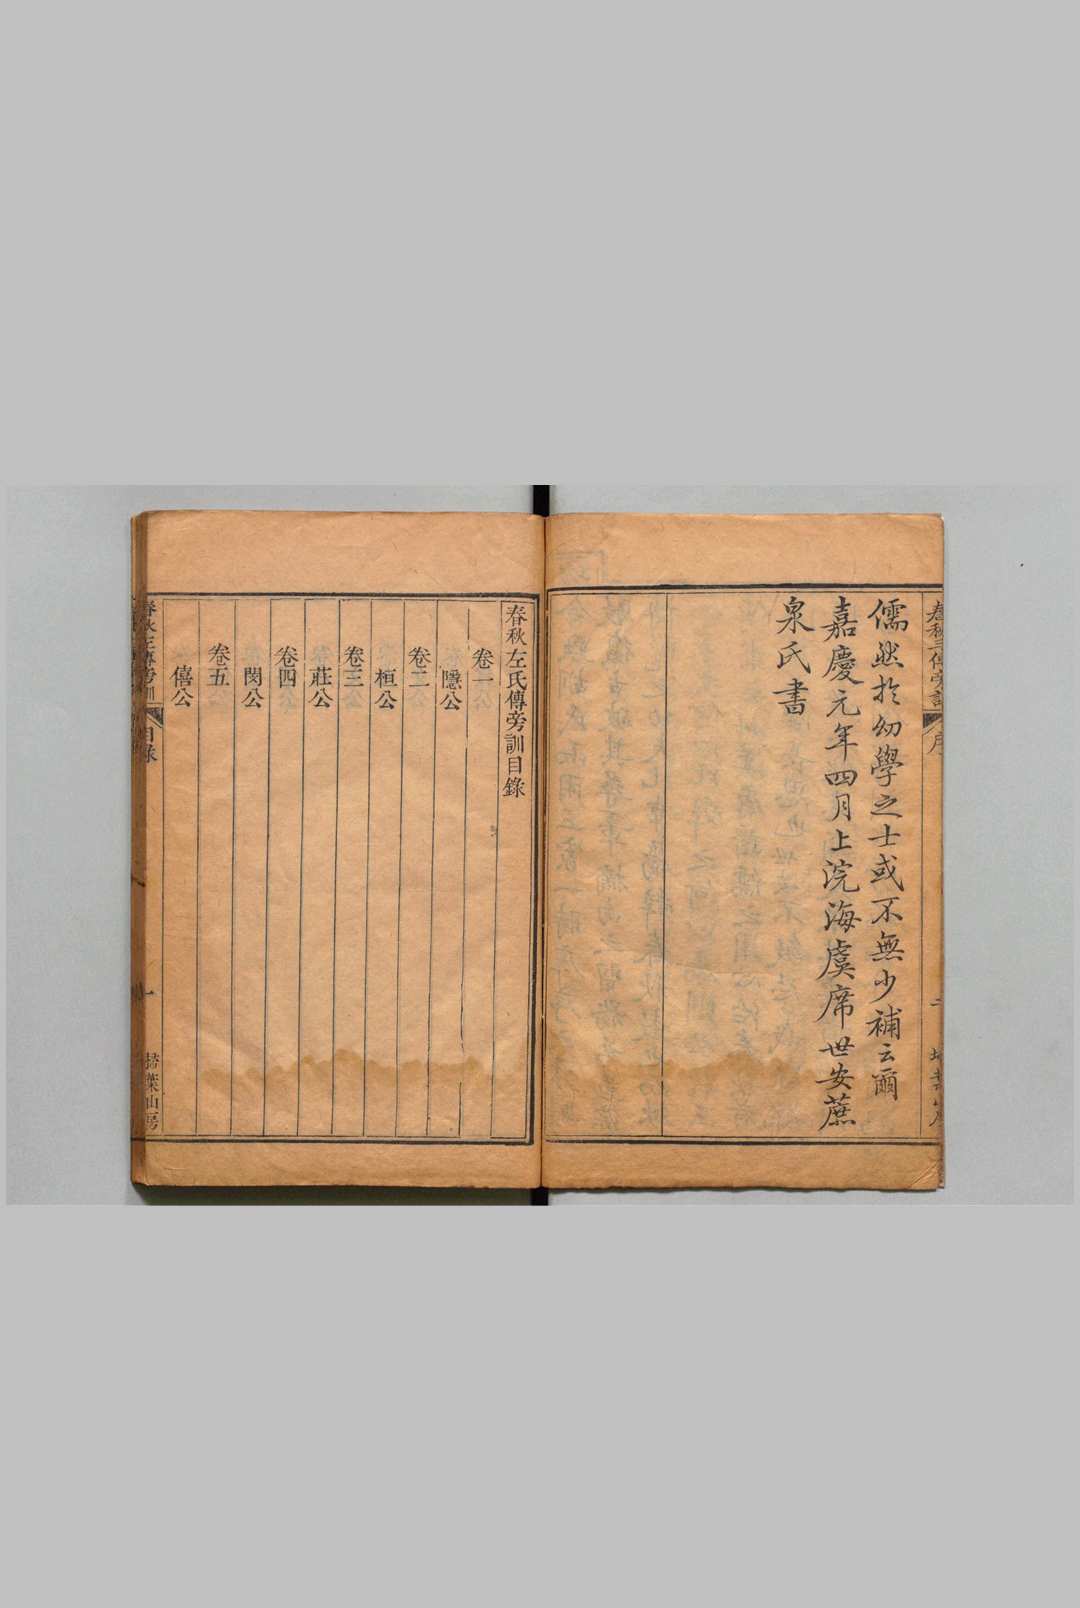 儒然於幼學之士或不無少補云爾
嘉慶元年四月上浣海虞席世安蔗
泉氏書
春秋左氏傳旁訓目錄
卷一
隱公
卷二
桓公
卷三
莊公
卷四
閔公
卷五
僖公
春秋左傳旁訓
目錄
一
掃葉山房